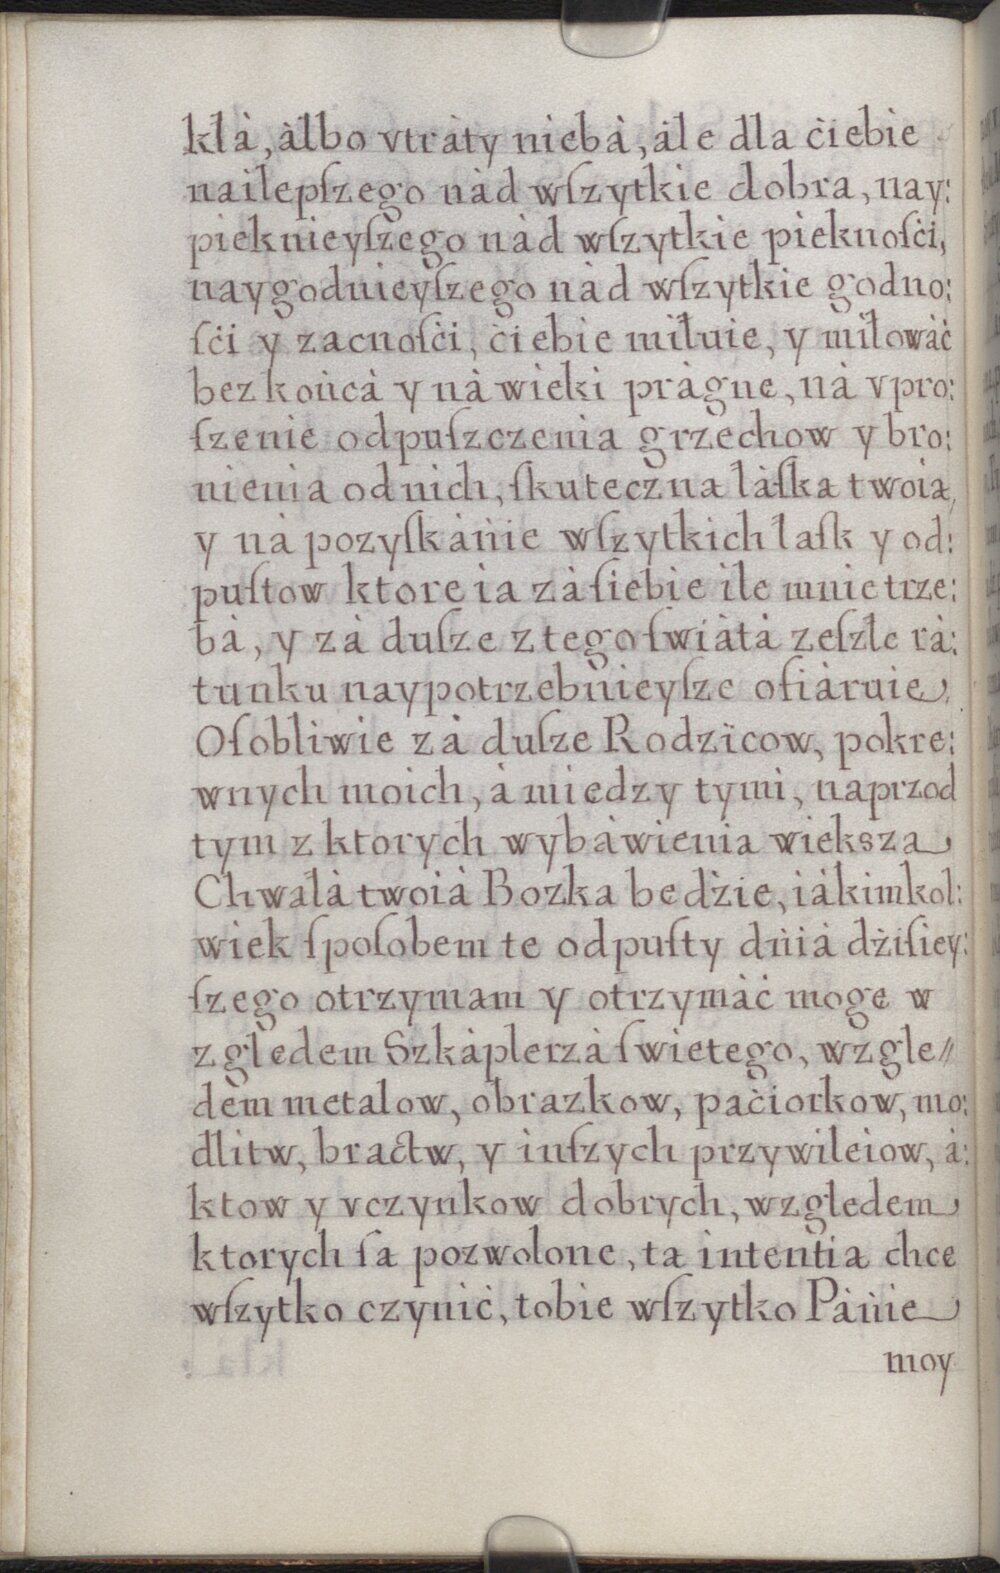 kłá, álbo vtráty niebá, ále dla ċiebie
nailepſzego nád wſzytkie dobra, nay:
pieknieyſzego nád wſzytkie pieknoſċi,
naygodnieyſzego nád wſzytkie godno:
ſċi y zacnoſċi, ċiebie miłuie, y miłowáċ
bez końcá y ná wieki prágne, ná vpro:
ſzenie odpuſzczenia grzechow y bro:
nienia od nich, ſkuteczna łáſka twoia,
y ná pozyſkánie wſzytkich łaſk y od:
puſtow ktore ia zá ſiebie ile mnie trze:
bá, y zá duſze z tego ſwiátá zeſzłe rá:
tunku naypotrzebnieyſze ofiáruie,
Oſobliwie zá duſze Rodzicow, pokre:
wnych moich, á miedzy tymi, naprzod
tym z ktorych wybáwienia większa
Chwałá twoiá Bozka będżie, iákimkol:
wiek ſpoſobem te odpuſty dniá dżiſiey:
ſzego otrzymam y otrzymáċ mogę w
zgledem Szkáplerzá ſwietego, wzglę//
dem metalow, obrazkow, paċiorkow, mo:
dlitw, bractw, y inſzych przywileiow, á:
ktow y vczynkow dobrych, względem
ktorych ſa pozwolone, ta intentia chce
wſzytko czyniċ, tobie wſzytko Pánie
moy